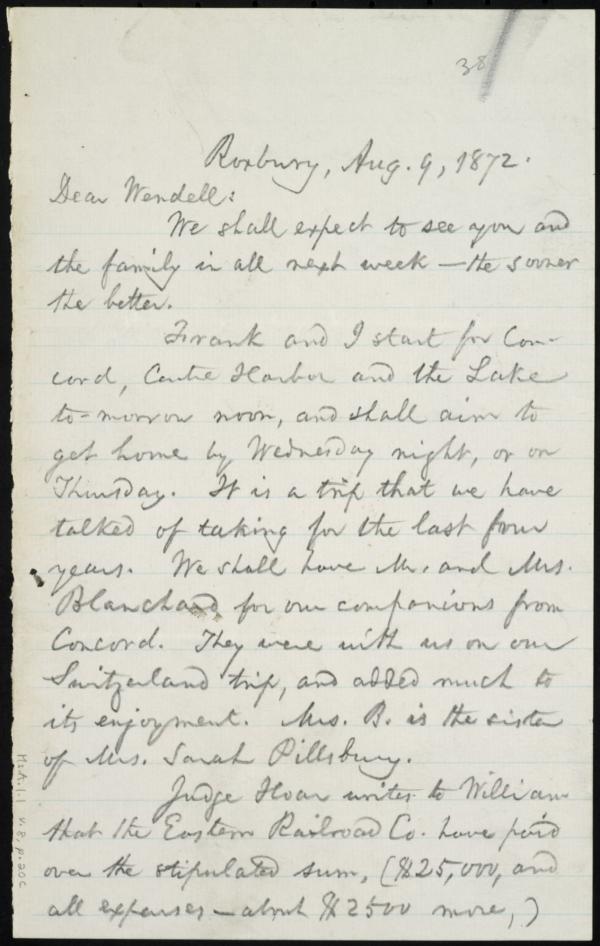 38
Roxbury, Aug. 9, 1872.
Dear Wendell:
We shall expect to see you and
the family in all next week — the sooner
the better.
Frank and I start for Con-
cord, Centre Harbor and the Lake
to-morrow noon, and shall aim to
get home by Wednesday night, or on
Thursday. It is a trip that we have
talked of taking for the last four
years. We shall have Mr. and Mrs.
Blanchard for our companions from
Concord. They were with us on our
Switzerland trip, and added much to
its enjoyment. Mrs. B. is the sister
of Mrs. Sarah Pillsbury.
Judge Hoar writes to William
that the Eastern Railroad Co. have paid
over the stipulated sum, ($25,000, and
all expenses — about $2500 more,)
Ms.A.1.1 v.8, p.20C